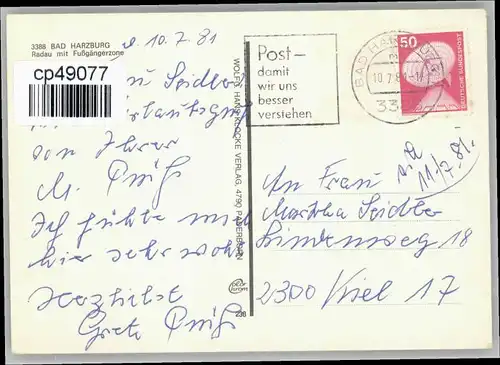 3388 BAD HARZBURG
Radau mit Fußgängerzone
d. 10.7.81
cp49077
Seidler
von Ihrer
M.
Ich fühle mich
hier sehr wohl
Herzlichst
Grete
WOLFG. HANS KLOCKE VERLAG, 4790 PADERBORN
238
Post–
damit
wir uns
besser
verstehen
BAD HARZBURG
10.7.81
33
50
DEUTSCHE BUNDESPOST
11.7.81.
An Frau
Martha Seidler
Lindenweg 18
2300 Kiel 17